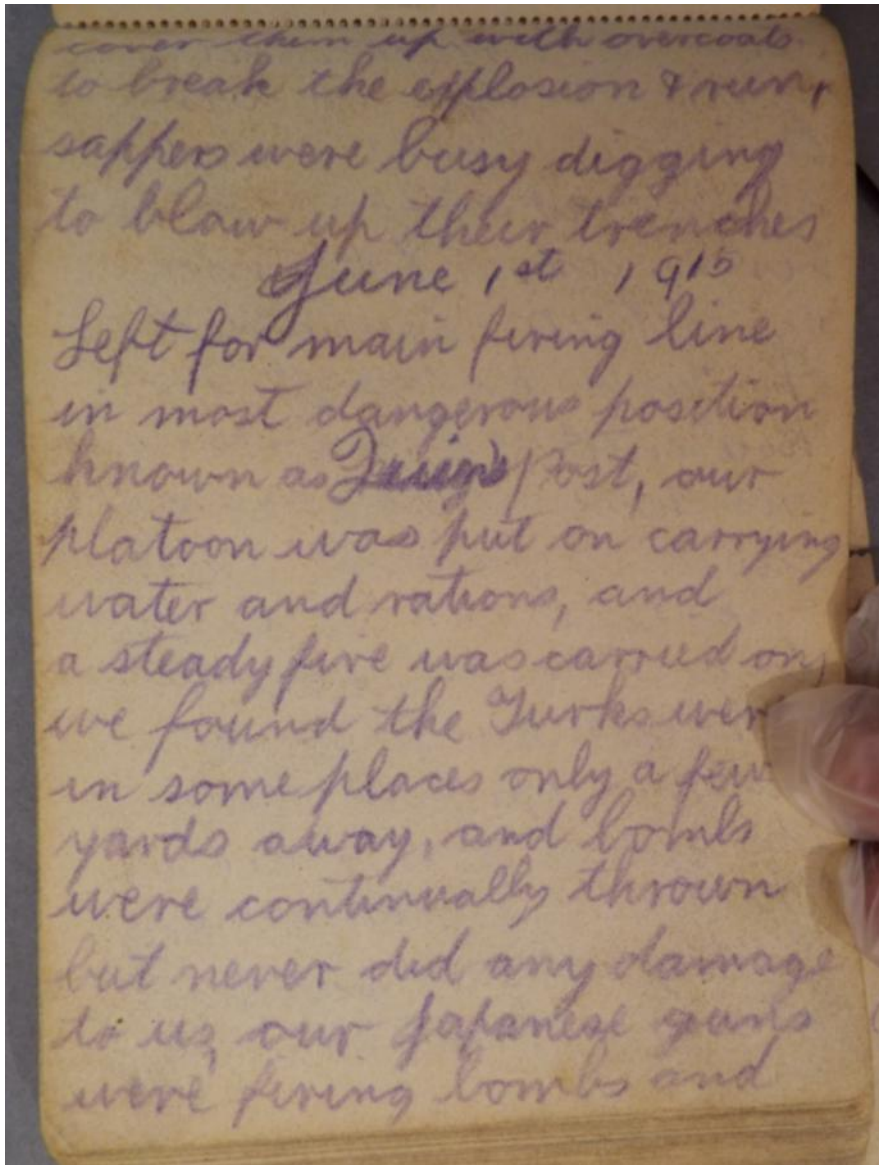 cover them up with overcoats
to break the explosion & run,
sappers were busy digging
to blow up their trenches
June 1st 1915
Left for main firing line
in most dangerous position
known as Quinn's Post, our
platoon was put on carrying
water and rations, and
a steady fire was carried on,
we found the Turks were
in some places only a few
yards away, and bombs
were continually thrown
but never did any damage
to us, our Japanese guns
were firing bombs and